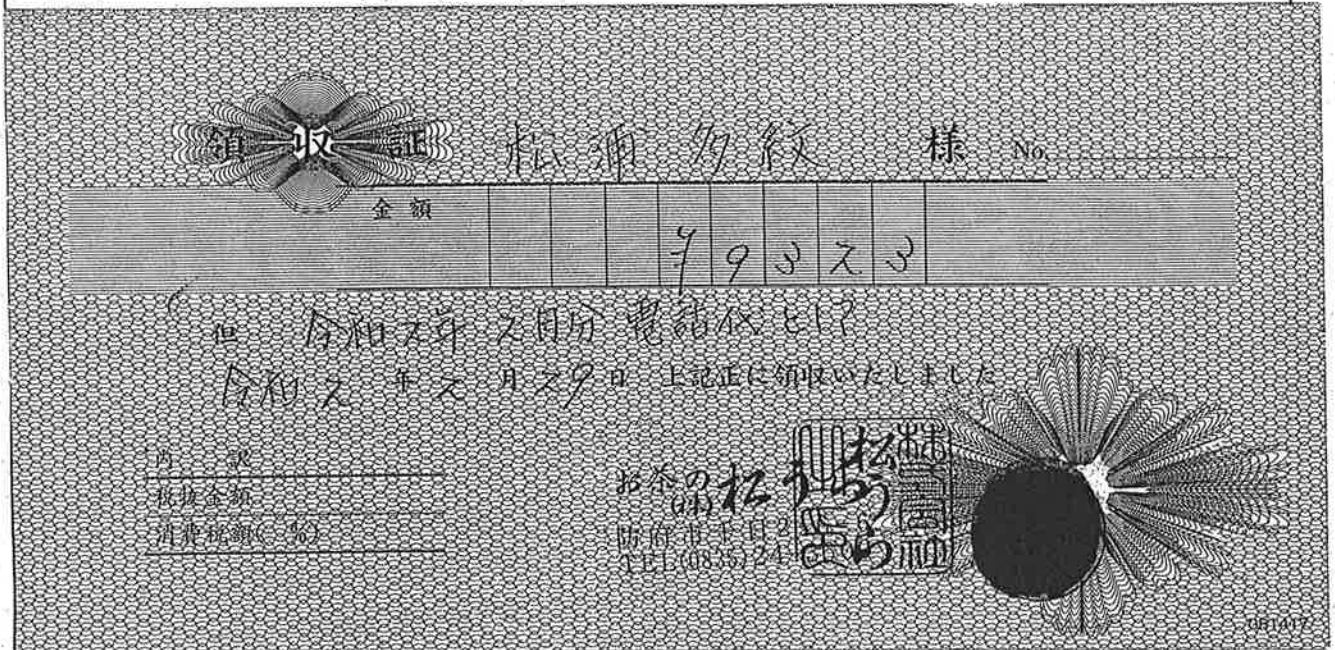 領収証 松浦多紋 様 No.
金額 ¥9323
但 令和2年2月分 電話代として
令和2年2月29日 上記正に領収いたしました
内訳
税抜金額
消費税額( %)
お茶の(株)松うら
防府市千日2
TEL(0835)24